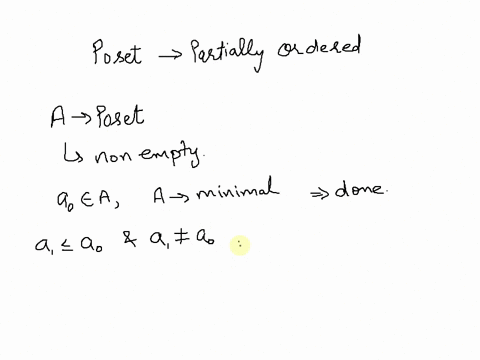 Poset → Partially ordered
A → Poset
↳ non empty.
a₀ ∈ A, A → minimal ⇒ done.
a₁ ≤ a₀ & a₁ ≠ a₀